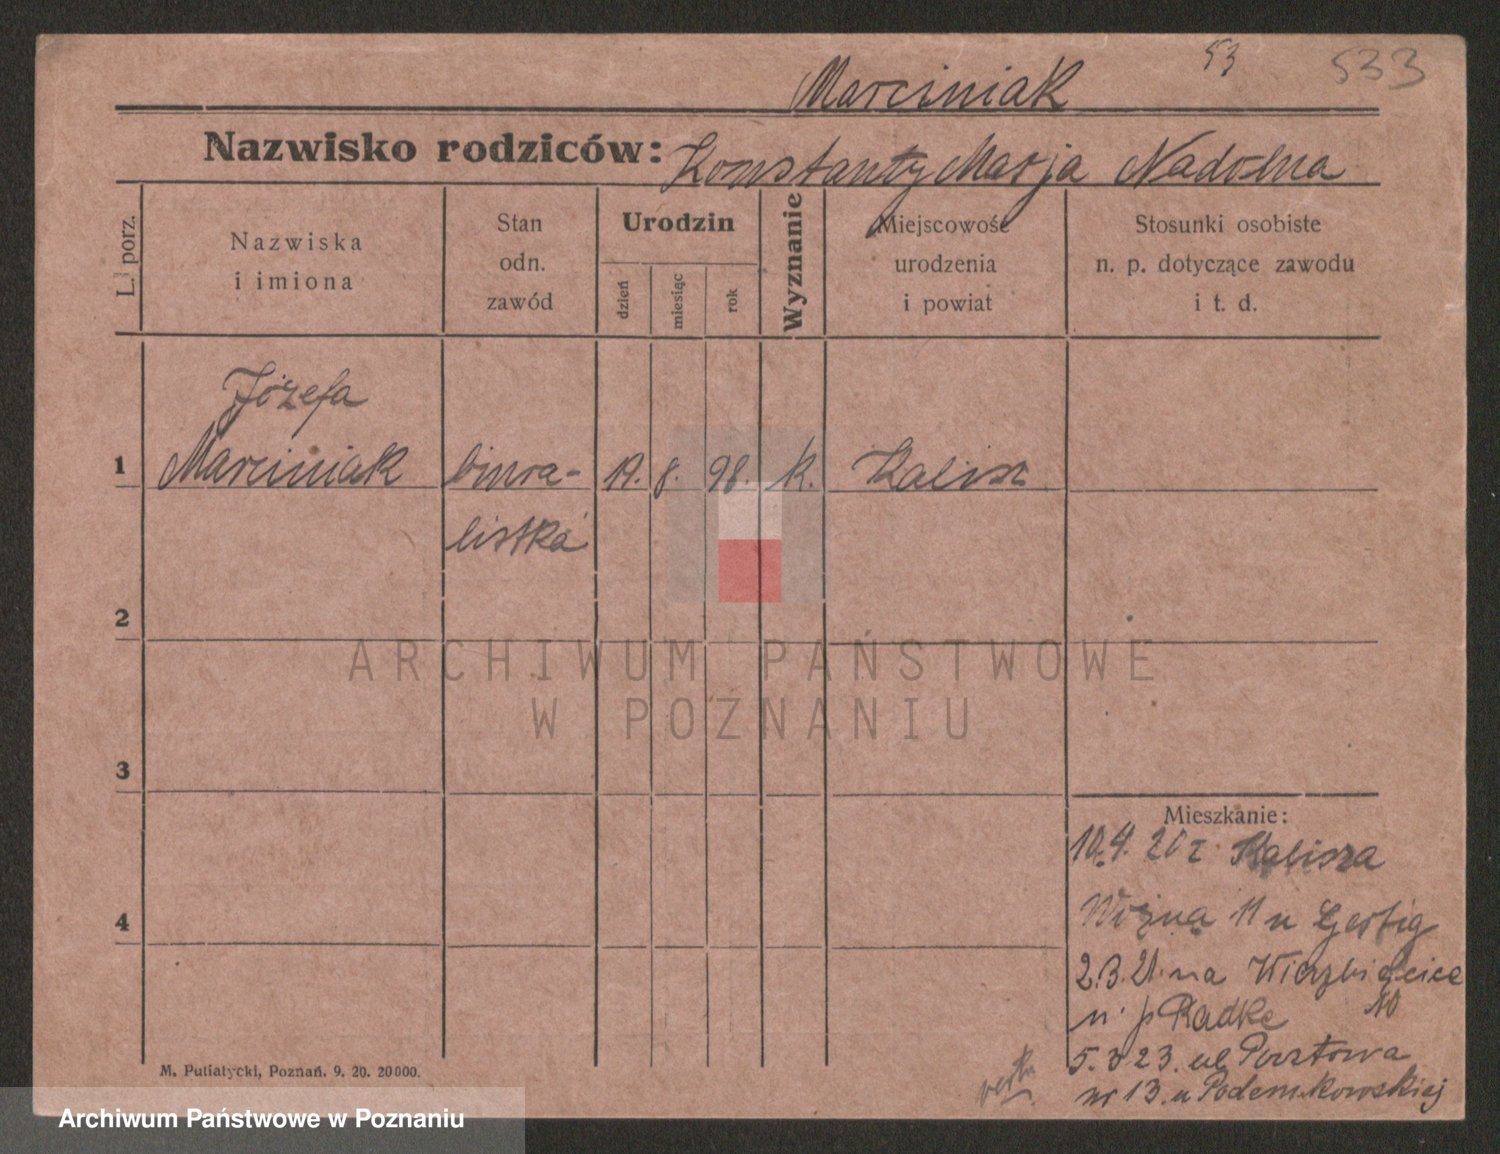 53 533
Marciniak
Nazwisko rodziców: Konstanty Marja Nadolna
L. porz.
Nazwiska
i imiona
Stan
odn.
zawód
Urodzin
dzień
miesiąc
rok
Wyznanie
Miejscowość
urodzenia
i powiat
Stosunki osobiste
n. p. dotyczące zawodu
i t. d.
Józefa
1 Marciniak biura- 19. 8. 98. k. Kalisz
listka
2
3
4
Mieszkanie:
10.4.20 z Kalisza
Woźna 11 u
2.3.21. na Wierzbięcice
u. p Radke 10
5.3 23. ul Pocztowa
nr 13. u Podemskowskiej
M. Putiatycki, Poznań. 9. 20. 20000.
ARCHIWUM PAŃSTWOWE
W POZNANIU
Archiwum Państwowe w Poznaniu